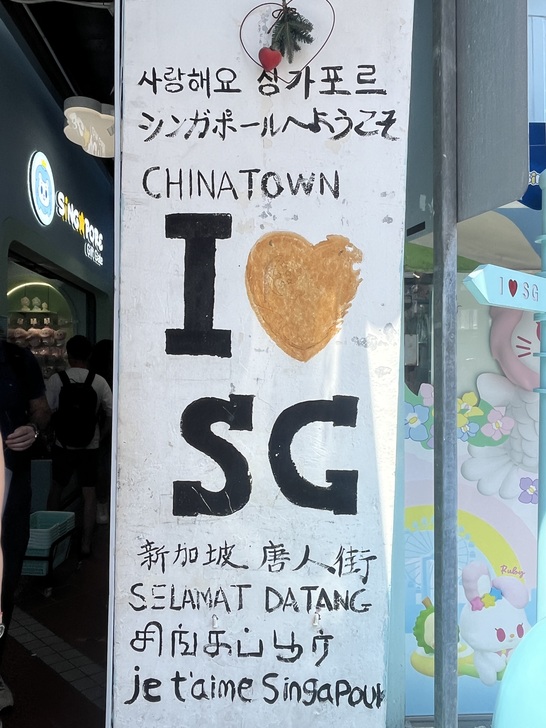 사랑해요 싱가포르
シンガポールへようこそ
CHINATOWN
I
SG
新加坡 唐人街
SELAMAT DATANG
சிங்கப்பூர்
je t'aime Singapour
SINGAPORE
I ♥ SG
Ruby